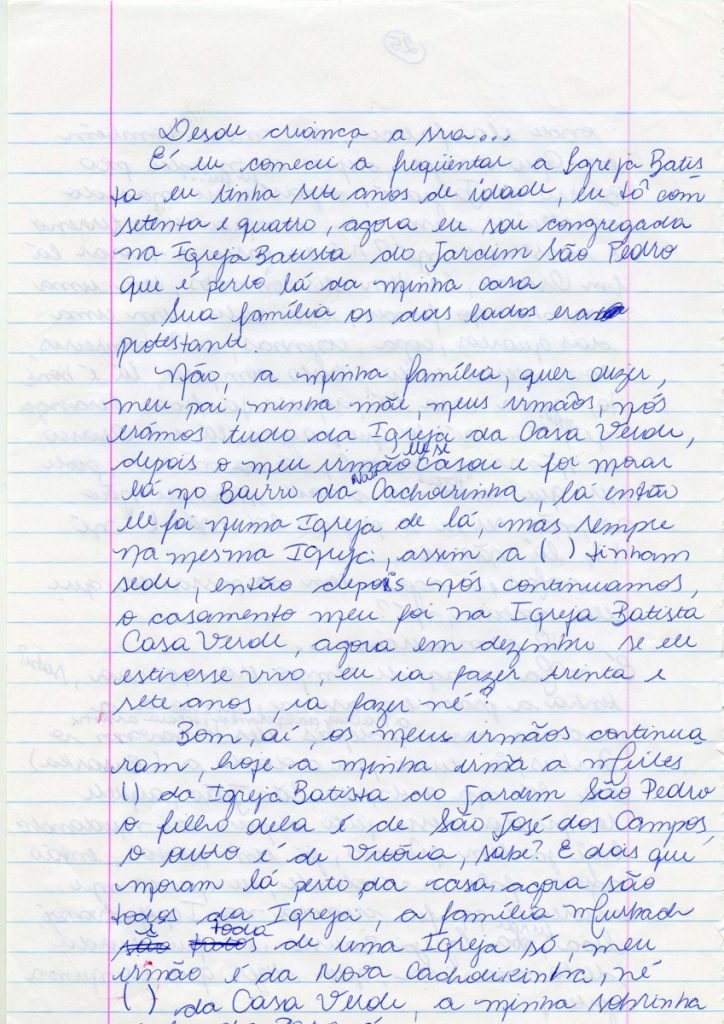 Desde criança a sra...
É eu comecei a freqüentar a Igreja Batis
ta eu tinha sete anos de idade, eu tô com
setenta e quatro, agora eu sou congregada
na Igreja Batista do Jardim São Pedro
que é perto lá da minha casa
Sua família os dois lados era
protestante.
Não, a minha família, quer dizer,
meu pai, minha mãe, meus irmãos, nós
erámos tudo da Igreja da Casa Verde,
depois o meu irmão casou e foi morar
lá no Bairro da Nova Cachoeirinha, lá então
ele foi numa Igreja de lá, mas sempre
na mesma Igreja, assim a ( ) tinham
sede, então depois nós continuamos,
o casamento meu foi na Igreja Batista
Casa Verde, agora em dezembro se ele
estivesse vivo, eu ia fazer trinta e
sete anos, ia fazer né?
Bom, aí, os meus irmãos continua
ram, hoje a minha irmã a
( ) da Igreja Batista do Jardim São Pedro
o filho dela é de São José dos Campos,
o outro é de Vitória, sabe? E dois que
moram lá perto da casa, agora são
todos da Igreja, a família
é toda de uma Igreja só, meu
irmão é da Nova Cachoeirinha, né
( ) da Casa Verde, a minha sobrinha